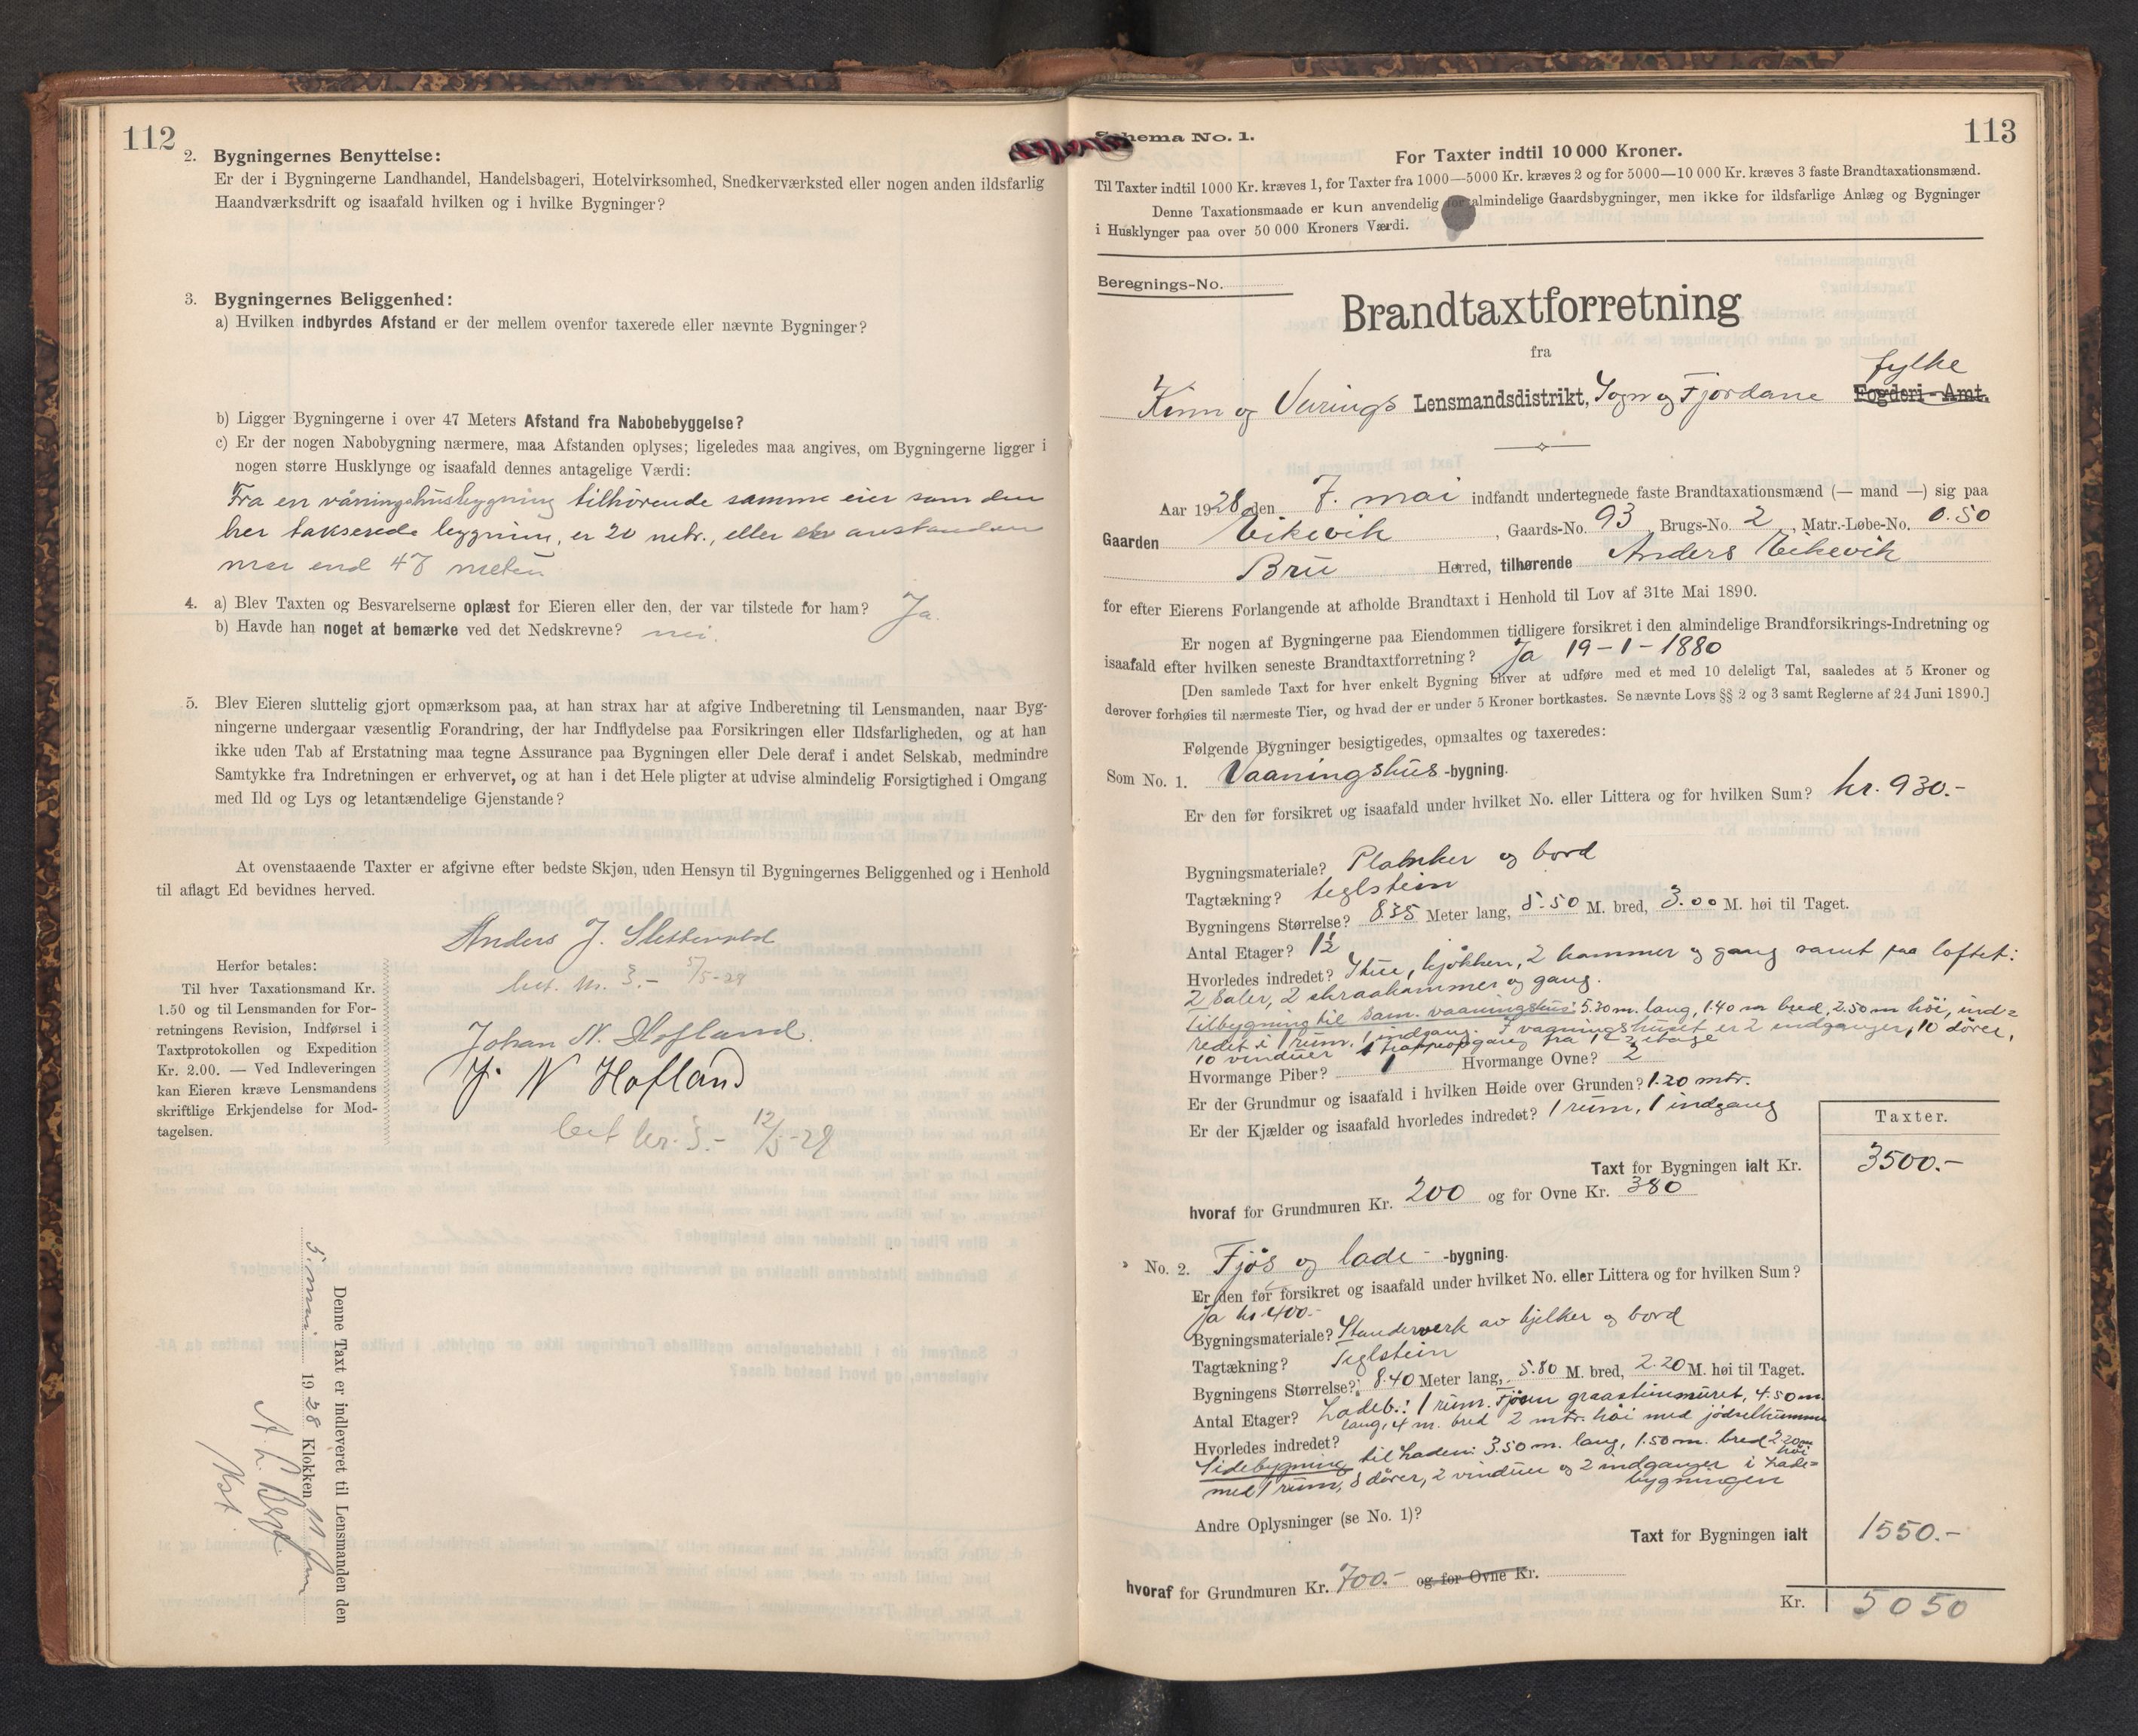 112
2. Bygningernes Benyttelse:
Er der i Bygningerne Landhandel, Handelsbageri, Hotelvirksomhed, Snedkerværksted eller nogen anden ildsfarlig
Haandværksdrift og isaafald hvilken og i hvilke Bygninger?
3. Bygningernes Beliggenhed:
a) Hvilken indbyrdes Afstand er der mellem ovenfor taxerede eller nævnte Bygninger?
b) Ligger Bygningerne i over 47 Meters Afstand fra Nabobebyggelse?
c) Er der nogen Nabobygning nærmere, maa Afstanden oplyses; ligeledes maa angives, om Bygningerne ligger i
nogen større Husklynge og isaafald dennes antagelige Værdi:
Fra en våningshusbygning tilhörende samme eier som den
her takserede bygning, er 20 mtr., eller avstanden
mer end 47 meter
4. a) Blev Taxten og Besvarelserne oplæst for Eieren eller den, der var tilstede for ham? Ja.
b) Havde han noget at bemærke ved det Nedskrevne? nei.
5. Blev Eieren sluttelig gjort opmærksom paa, at han strax har at afgive Indberetning til Lensmanden, naar Byg-
ningerne undergaar væsentlig Forandring, der har Indflydelse paa Forsikringen eller Ildsfarligheden, og at han
ikke uden Tab af Erstatning maa tegne Assurance paa Bygningen eller Dele deraf i andet Selskab, medmindre
Samtykke fra Indretningen er erhvervet, og at han i det Hele pligter at udvise almindelig Forsigtighed i Omgang
med Ild og Lys og letantændelige Gjenstande?
At ovenstaaende Taxter er afgivne efter bedste Skjøn, uden Hensyn til Bygningernes Beliggenhed og i Henhold
til aflagt Ed bevidnes herved.
Anders J.
bet. kr. 3.- 5/5-28
Johan N. Hofland.
J. N Hofland
bet kr. 3.- 12/5-28
Herfor betales:
Til hver Taxationsmand Kr.
1.50 og til Lensmanden for For-
retningens Revision, Indførsel i
Taxtprotokollen og Expedition
Kr. 2.00. — Ved Indleveringen
kan Eieren kræve Lensmandens
skriftlige Erkjendelse for Mod-
tagelsen.
Denne Taxt er indleveret til Lensmanden den
5. mai 1928 Klokken 11 fm
Kst.
113
Schema No. 1.
For Taxter indtil 10 000 Kroner.
Til Taxter indtil 1000 Kr. kræves 1, for Taxter fra 1000—5000 Kr. kræves 2 og for 5000—10 000 Kr. kræves 3 faste Brandtaxationsmænd.
Denne Taxationsmaade er kun anvendelig for almindelige Gaardsbygninger, men ikke for ildsfarlige Anlæg og Bygninger
i Husklynger paa over 50 000 Kroners Værdi.
Beregnings-No.
Brandtaxtforretning
fra
fylke
Kinn og Vevrings Lensmandsdistrikt, Sogn og Fjordane Fogderi - Amt.
Aar 1928 den 7. mai indfandt undertegnede faste Brandtaxationsmænd (— mand —) sig paa
Gaarden Eikevik, Gaards-No. 93, Brugs-No. 2, Matr.-Løbe-No. 0.50
Bru Herred, tilhørende Anders Eikevik
for efter Eierens Forlangende at afholde Brandtaxt i Henhold til Lov af 31te Mai 1890.
Er nogen af Bygningerne paa Eiendommen tidligere forsikret i den almindelige Brandforsikrings-Indretning og
isaafald efter hvilken seneste Brandtaxtforretning? Ja 19-1-1880
[Den samlede Taxt for hver enkelt Bygning bliver at udføre med et med 10 deleligt Tal, saaledes at 5 Kroner og
derover forhøies til nærmeste Tier, og hvad der er under 5 Kroner bortkastes. Se nævnte Lovs §§ 2 og 3 samt Reglerne af 24 Juni 1890.]
Følgende Bygninger besigtigedes, opmaaltes og taxeredes:
Som No. 1. Vaaningshus-bygning.
Er den før forsikret og isaafald under hvilket No. eller Littera og for hvilken Sum? kr. 930.-
Bygningsmateriale? Planker og bord
Tagtækning? teglstein
Bygningens Størrelse? 8.35 Meter lang, 5.50 M. bred, 3.00 M. høi til Taget.
Antal Etager? 1½
Hvorledes indredet? Stue, kjökken, 2 kammer og gang samt paa loftet:
2 Saler, 2 skraakammer og gang.
Tilbygning til sam. vaaningshus: 5.30 m. lang, 1.40 m bred, 2.50 m höi, ind=
redet i 1 rum, 1 indgang. I vaaningshuset er 2 indganger, 10 dörer,
10 vinduer 1 trappeopgang fra 1-2 etage
Hvormange Piber? 1 Hvormange Ovne? 2
Er der Grundmur og isaafald i hvilken Høide over Grunden? 1.20 mtr.
Er der Kjælder og isaafald hvorledes indredet? 1 rum, 1 indgang
Taxter.
Taxt for Bygningen ialt Kr. 3500.-
hvoraf for Grundmuren Kr. 200 og for Ovne Kr. 380
No. 2. Fjös og lade-bygning.
Er den før forsikret og isaafald under hvilket No. eller Littera og for hvilken Sum?
Ja kr. 400.-
Bygningsmateriale? Standerverk av bjelker og bord
Tagtækning? Teglstein
Bygningens Størrelse? 8.40 Meter lang, 5.80 M. bred, 2.20 M. høi til Taget.
Antal Etager? Ladeb.: 1 rum. Fjösen graasteinsmuret, 4.50 m.
lang, 4 m. bred 2 mtr. höi med jödselkummer
Hvorledes indredet?
Sidebygning til Laden: 3.50 m. lang, 1.50 m. bred 2.20 m. höi
med 1 rum, 8 dörer, 2 vinduer og 2 indganger i Lade=
bygningen
Andre Oplysninger (se No. 1)?
Taxt for Bygningen ialt 1550.-
hvoraf for Grundmuren Kr. 700.- og for Ovne Kr.
Kr. 5050